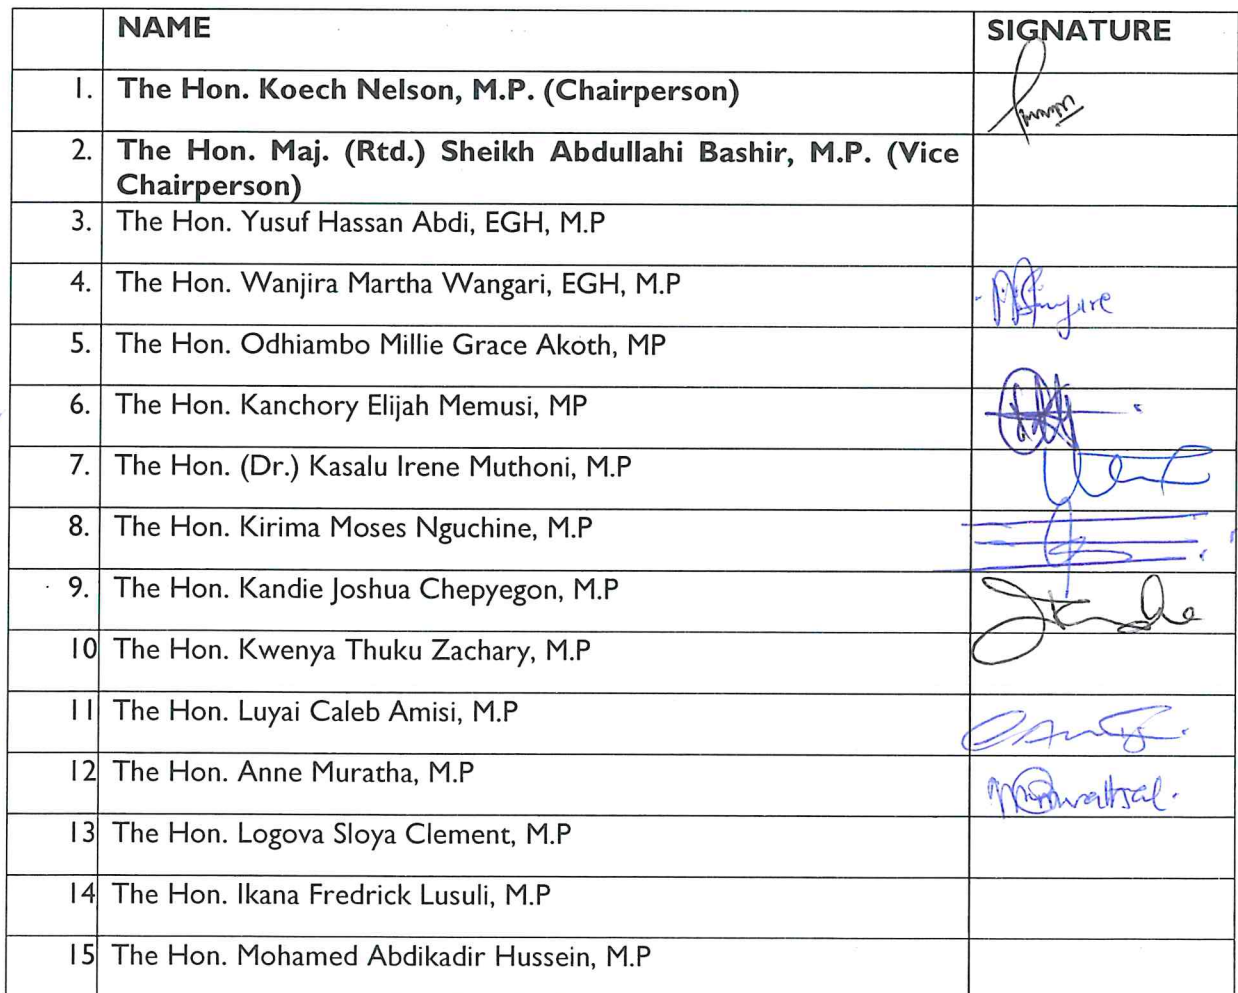 NAME SIGNATURE
1. The Hon. Koech Nelson, M.P. (Chairperson)
2. The Hon. Maj. (Rtd.) Sheikh Abdullahi Bashir, M.P. (Vice
Chairperson)
3. The Hon. Yusuf Hassan Abdi, EGH, M.P
4. The Hon. Wanjira Martha Wangari, EGH, M.P
5. The Hon. Odhiambo Millie Grace Akoth, MP
6. The Hon. Kanchory Elijah Memusi, MP
7. The Hon. (Dr.) Kasalu Irene Muthoni, M.P
8. The Hon. Kirima Moses Nguchine, M.P
9. The Hon. Kandie Joshua Chepyegon, M.P
10 The Hon. Kwenya Thuku Zachary, M.P
11 The Hon. Luyai Caleb Amisi, M.P
12 The Hon. Anne Muratha, M.P
13 The Hon. Logova Sloya Clement, M.P
14 The Hon. Ikana Fredrick Lusuli, M.P
15 The Hon. Mohamed Abdikadir Hussein, M.P